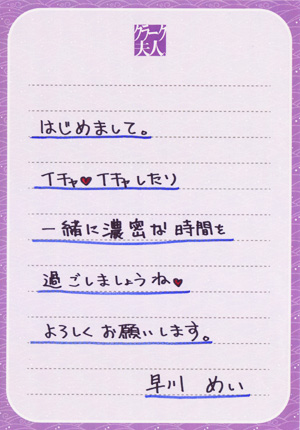 クラーク
夫人
はじめまして。
イチャ♥イチャしたり
一緒に濃密な時間を
過ごしましょうね♥
よろしくお願いします。
早川 めい